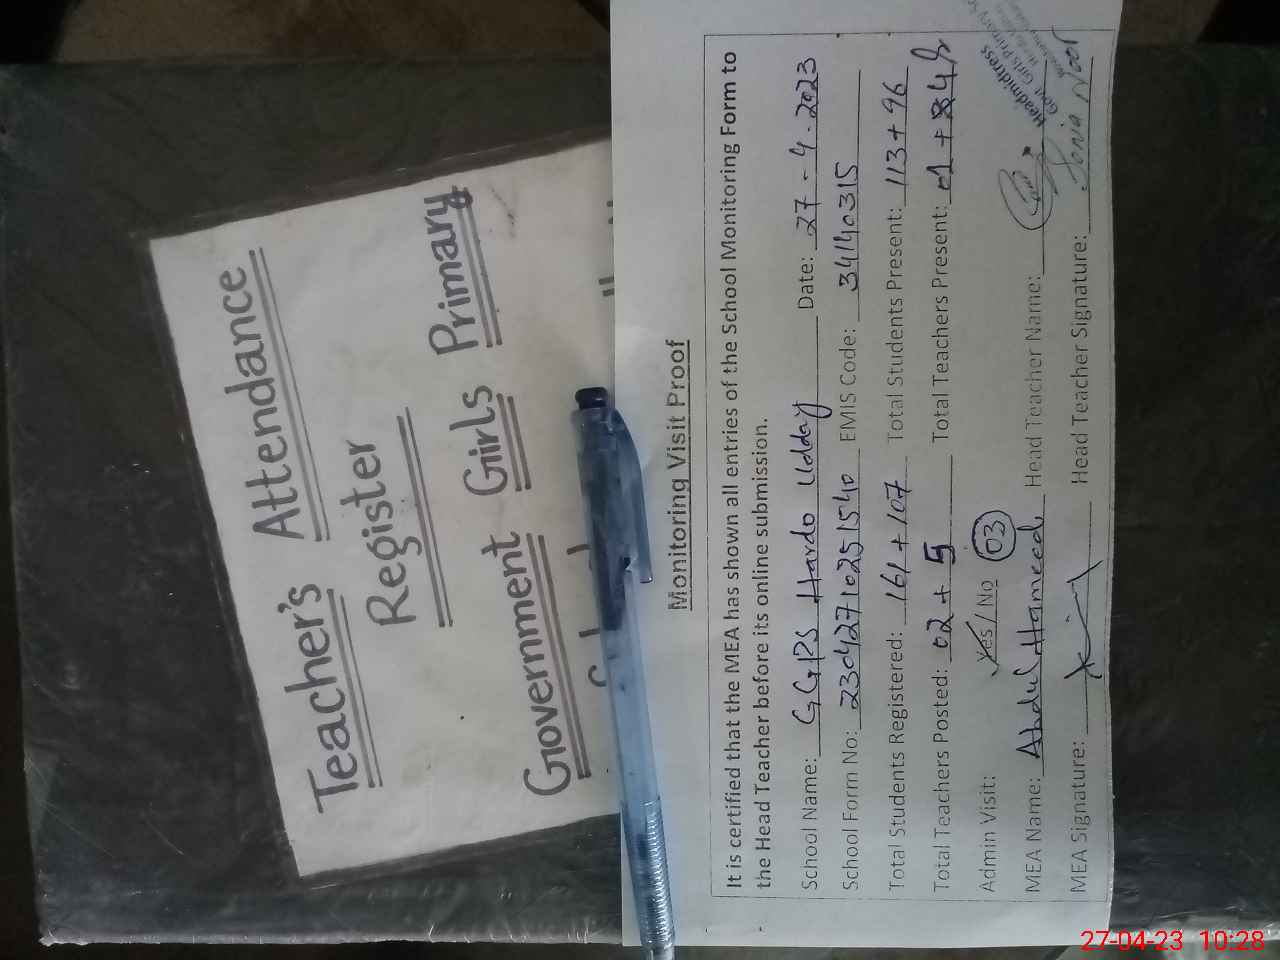 Teacher's Attendance
Register
Government Girls Primary
Monitoring Visit Proof
It is certified that the MEA has shown all entries of the School Monitoring Form to
the Head Teacher before its online submission.
School Name: GGPS Hardo Udday Date: 27-4-2023
School Form No: 23042710251540 EMIS Code: 34140315
Total Students Registered: 161+107 Total Students Present: 113+96
Total Teachers Posted: 02+5 Total Teachers Present: 01+4
Admin Visit: Yes/No 03
MEA Name: Abdul Hameed Head Teacher Name:
MEA Signature: Head Teacher Signature: Sonia Noor
Headmistress
Govt. Girls Primary
27-04-23 10:28